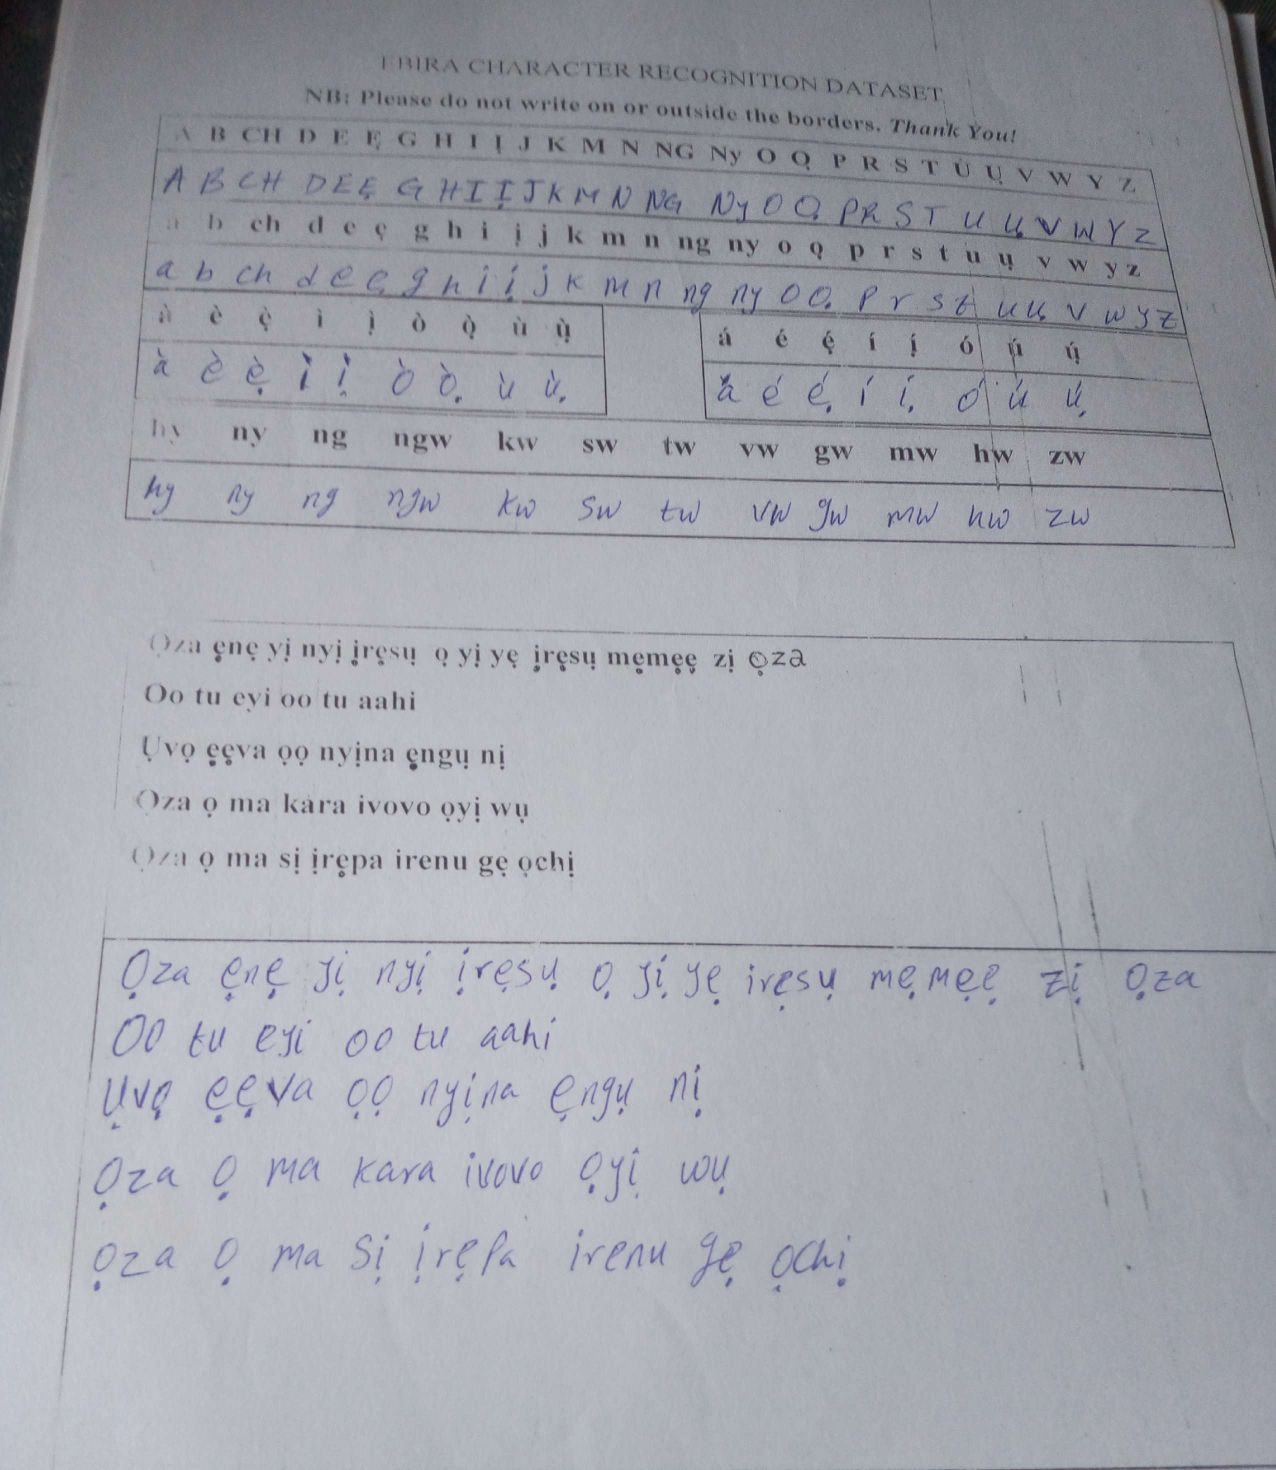 EBIRA CHARACTER RECOGNITION DATASET
NB: Please do not write on or outside the borders. Thank You!
A B CH D E Ẹ G H I Ị J K M N NG Ny O Ọ P R S T U Ụ V W Y Z
A B CH D E Ẹ G H I Ị J K M N NG Ny O Ọ P R S T U Ụ V W Y Z
a b ch d e ẹ g h i ị j k m n ng ny o ọ p r s t u ụ v w y z
a b ch d e ẹ g h i ị j k m n ng ny o ọ p r s t u ụ v w y z
à è ẹ̀ ì ị̀ ò ọ̀ ù ụ̀ á é ẹ́ í ị́ ó ú ụ́
à è ẹ̀ ì ị̀ ò ọ̀ ù ụ̀ á é ẹ́ í ị́ ó ú ụ́
hy ny ng ngw kw sw tw vw gw mw hw zw
hy ny ng ngw kw sw tw vw gw mw hw zw
Ọza ẹnẹ yị nyị ịrẹsụ ọ yị yẹ ịrẹsụ mẹmẹẹ zị ọza
Oo tu eyi oo tu aahi
Ụvọ ẹẹva ọọ nyịna ẹngụ nị
Ọza ọ ma kara ivovo ọyị wụ
Ọza ọ ma sị ịrẹpa irenu gẹ ọchị
Ọza ẹnẹ yị nyị ịrẹsụ ọ yị yẹ irẹsụ mẹmẹẹ zị ọza
Oo tu eyi oo tu aahi
Ụvọ ẹẹva ọọ nyịna ẹngụ nị
Ọza ọ ma kara ivovo ọyị wụ
ọza ọ ma sị ịrẹpa irenu gẹ ọchị